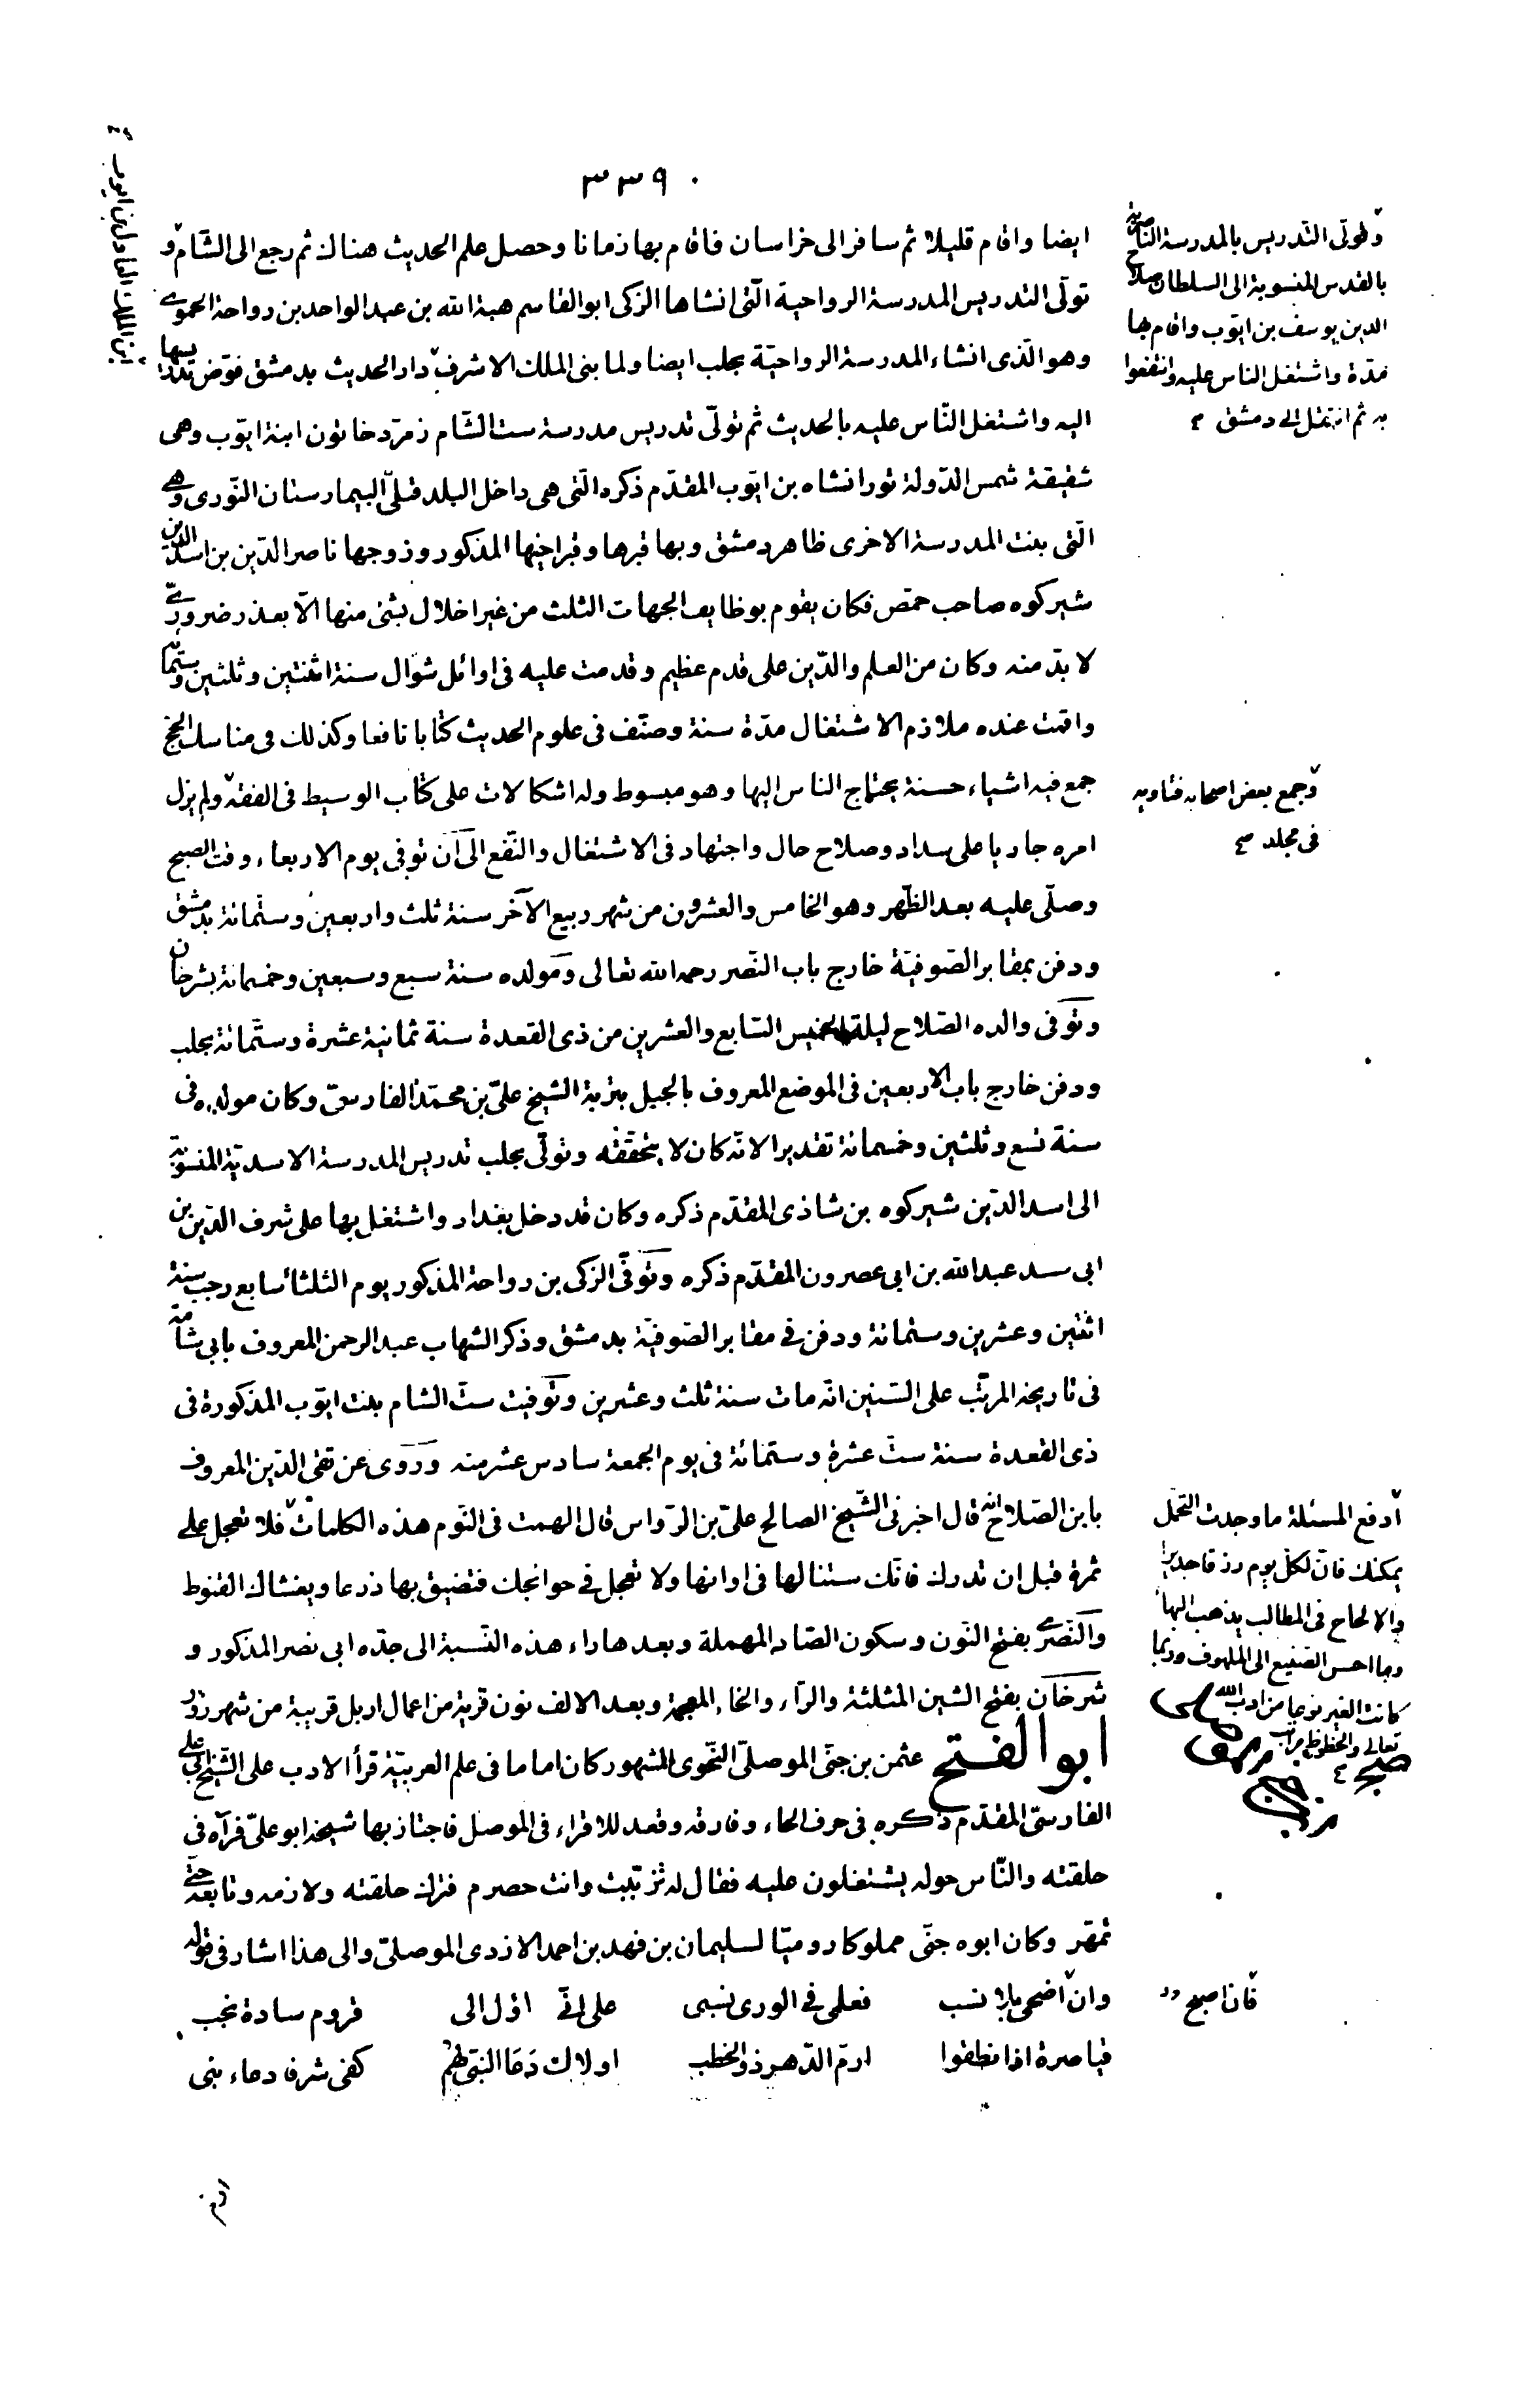 ٣٣٩
ايضا واقام قليلا ثم سافر الى خراسان فاقام بها زمانا وحصل علم الحديث هنالك ثم رجع الى الشام و
تولّى التدريس المدرسة الرواحية الّتى انشاها الزكى ابو القاسم هبة الله بن عبد الواحد بن رواحة الحموى
وهو الّذى انشاء المدرسة الرواحيّة بحلب ايضا ولما بنى الملك الاشرف دار الحديث بدمشق فوّض تدريسها
اليه واشتغل النّاس عليه بالحديث ثم تولّى تدريس مدرسة ست الشّام زمرّد خاتون ابنة ايّوب وهى
شقيقة شمس الدّولة تورانشاه بن ايّوب المقدّم ذكره الّتى هى داخل البلد قبلىّ البيمارستان النّورى وهى
الّتى بنت المدرسة الاخرى ظاهر دمشق وبها قبرها وقبر اخيها المذكور وزوجها ناصر الدّين بن اسد الدين
شيركوه صاحب حمّص فكان يقوم بوظايف الجهات الثلث من غير اخلال بشئ منها الّا بعذر ضرورىّ
لا بدّ منه وكان من العلم والدّين على قدم عظيم وقدمت عليه فى اوائل شوّال سنة اثنتين وثلثين وستمائة
واقمت عنده ملازم الاشتغال مدّة سنة وصنّف فى علوم الحديث كتابا نافعا وكذلك فى مناسك الحج
جمع فيه اشياء حسنة يحتاج الناس اليها وهو مبسوط وله اشكالات على كتاب الوسيط فى الفقه ولم يزل
امره جاريا على سداد وصلاح حال واجتهاد فى الاشتغال والنّفع الى ان توفى يوم الاربعاء وقت الصبح
وصلّى عليه بعد الظّهر وهو الخامس والعشرون من شهر ربيع الآخر سنة ثلث واربعين وستمائة بدمشق
ودفن بمقابر الصّوفيّة خارج باب النّصر رحمه الله تعالى ومولده سنة سبع وسبعين وخمسمائة بشرخان
وتوفى والده الصّلاح ليلة الخميس السّابع والعشرين من ذى القعدة سنة ثمانية عشرة وستّمائة بحلب
ودفن خارج باب الاربعين فى الموضع المعروف بالجبل بتربة الشيخ علىّ بن محمّد الفارسىّ وكان مولده فى
سنة تسع وثلثين وخمسمائة تقديرا لانّه كان لا يتحقّقه وتولّى بحلب تدريس المدرسة الاسديّة المنسوبة
الى اسد الدّين شيركوه بن شاذى المقدّم ذكره وكان قد دخل بغداد واشتغل بها على شرف الدّين بن
ابى سعد عبد الله بن ابى عصرون المقدّم ذكره وتوفّى الزكى بن رواحة المذكور يوم الثلثا سابع رجب سنة
اثنتين وعشرين وستمائة ودفن فى مقابر الصّوفيّة بدمشق وذكر الشهاب عبد الرحمن المعروف بابى شامة
فى تاريخه المرتّب على السّنين انّه مات سنة ثلث وعشرين وتوفيت ستّ الشام بنت ايّوب المذكورة فى
ذى القعدة سنة ستّ عشرة وستمائة فى يوم الجمعة سادس عشر منه وروى عن تقى الدّين المعروف
بابن الصّلاح انّه قال اخبرنى الشّيخ الصالح علىّ بن الروّاس قال الهمت فى النّوم هذه الكلمات فلا تعجل على
ثمرة قبل ان تدرك فانّك ستنالها فى اوانها ولا تعجل فى حوائجك فتضيق بها ذرعا ويغشاك القنوط
والنّصرى بفتح النّون وسكون الصّاد المهملة وبعدها راء هذه النّسبة الى جدّه ابى نصر المذكور و
شرخان بفتح الشين المثلثة والرّاء والخاء المعجمة وبعد الالف نون قرية من اعمال اربل قريبة من شهرزور
ابو الفتح عثمن بن جنّى الموصلىّ النّحوى المشهور كان اماما فى علم العربيّة قرأ الادب على الشّيخ ابى على
الفارسىّ المقدّم ذكره فى حرف الحاء وفارقه وقعد للاقراء فى الموصل فاجتاز بها شيخه ابو علىّ فرآه فى
حلقته والنّاس حوله يشتغلون عليه فقال له تزبّبت وانت حصرم فترك حلقته ولازمه وتابعه حتّى
تمهّر وكان ابوه جنّى مملوكا روميّا لسليمان بن فهد بن احمد الازدى الموصلىّ والى هذا اشار فى قوله
وان اضحى بلا نسب فعلمى فى الورى نسبى على انّى اؤل الى قروم سادة نجب
قياصرة اذا نطقوا ارمّ الدّهر ذو الخطب اولاك دعا النبّى لهم كفى شرفا دعاء نبى
وتولّى التدريس بالمدرسة الناصرية
بالقدس المنسوبة الى السلطان صلاح
الدين يوسف بن ايّوب واقام بها
مدّة واشتغل الناس عليه وانتفعوا
به ثم انتقل الى دمشق
ابن الملك العادل بن ايوب
وجمع بعض اصحابه فتاويه
فى مجلد
ادفع المسئلة ما وجدت التحمّل
يمكنك فانّ لكل يوم رزقا جديدا
والالحاح فى المطالب يذهب البهاء
وما احسن الصنيع الى الملهوف وربما
كانت الغير نوعا من ادب الله
تعالى والحظوظ مراتب
صح
فان اصبح